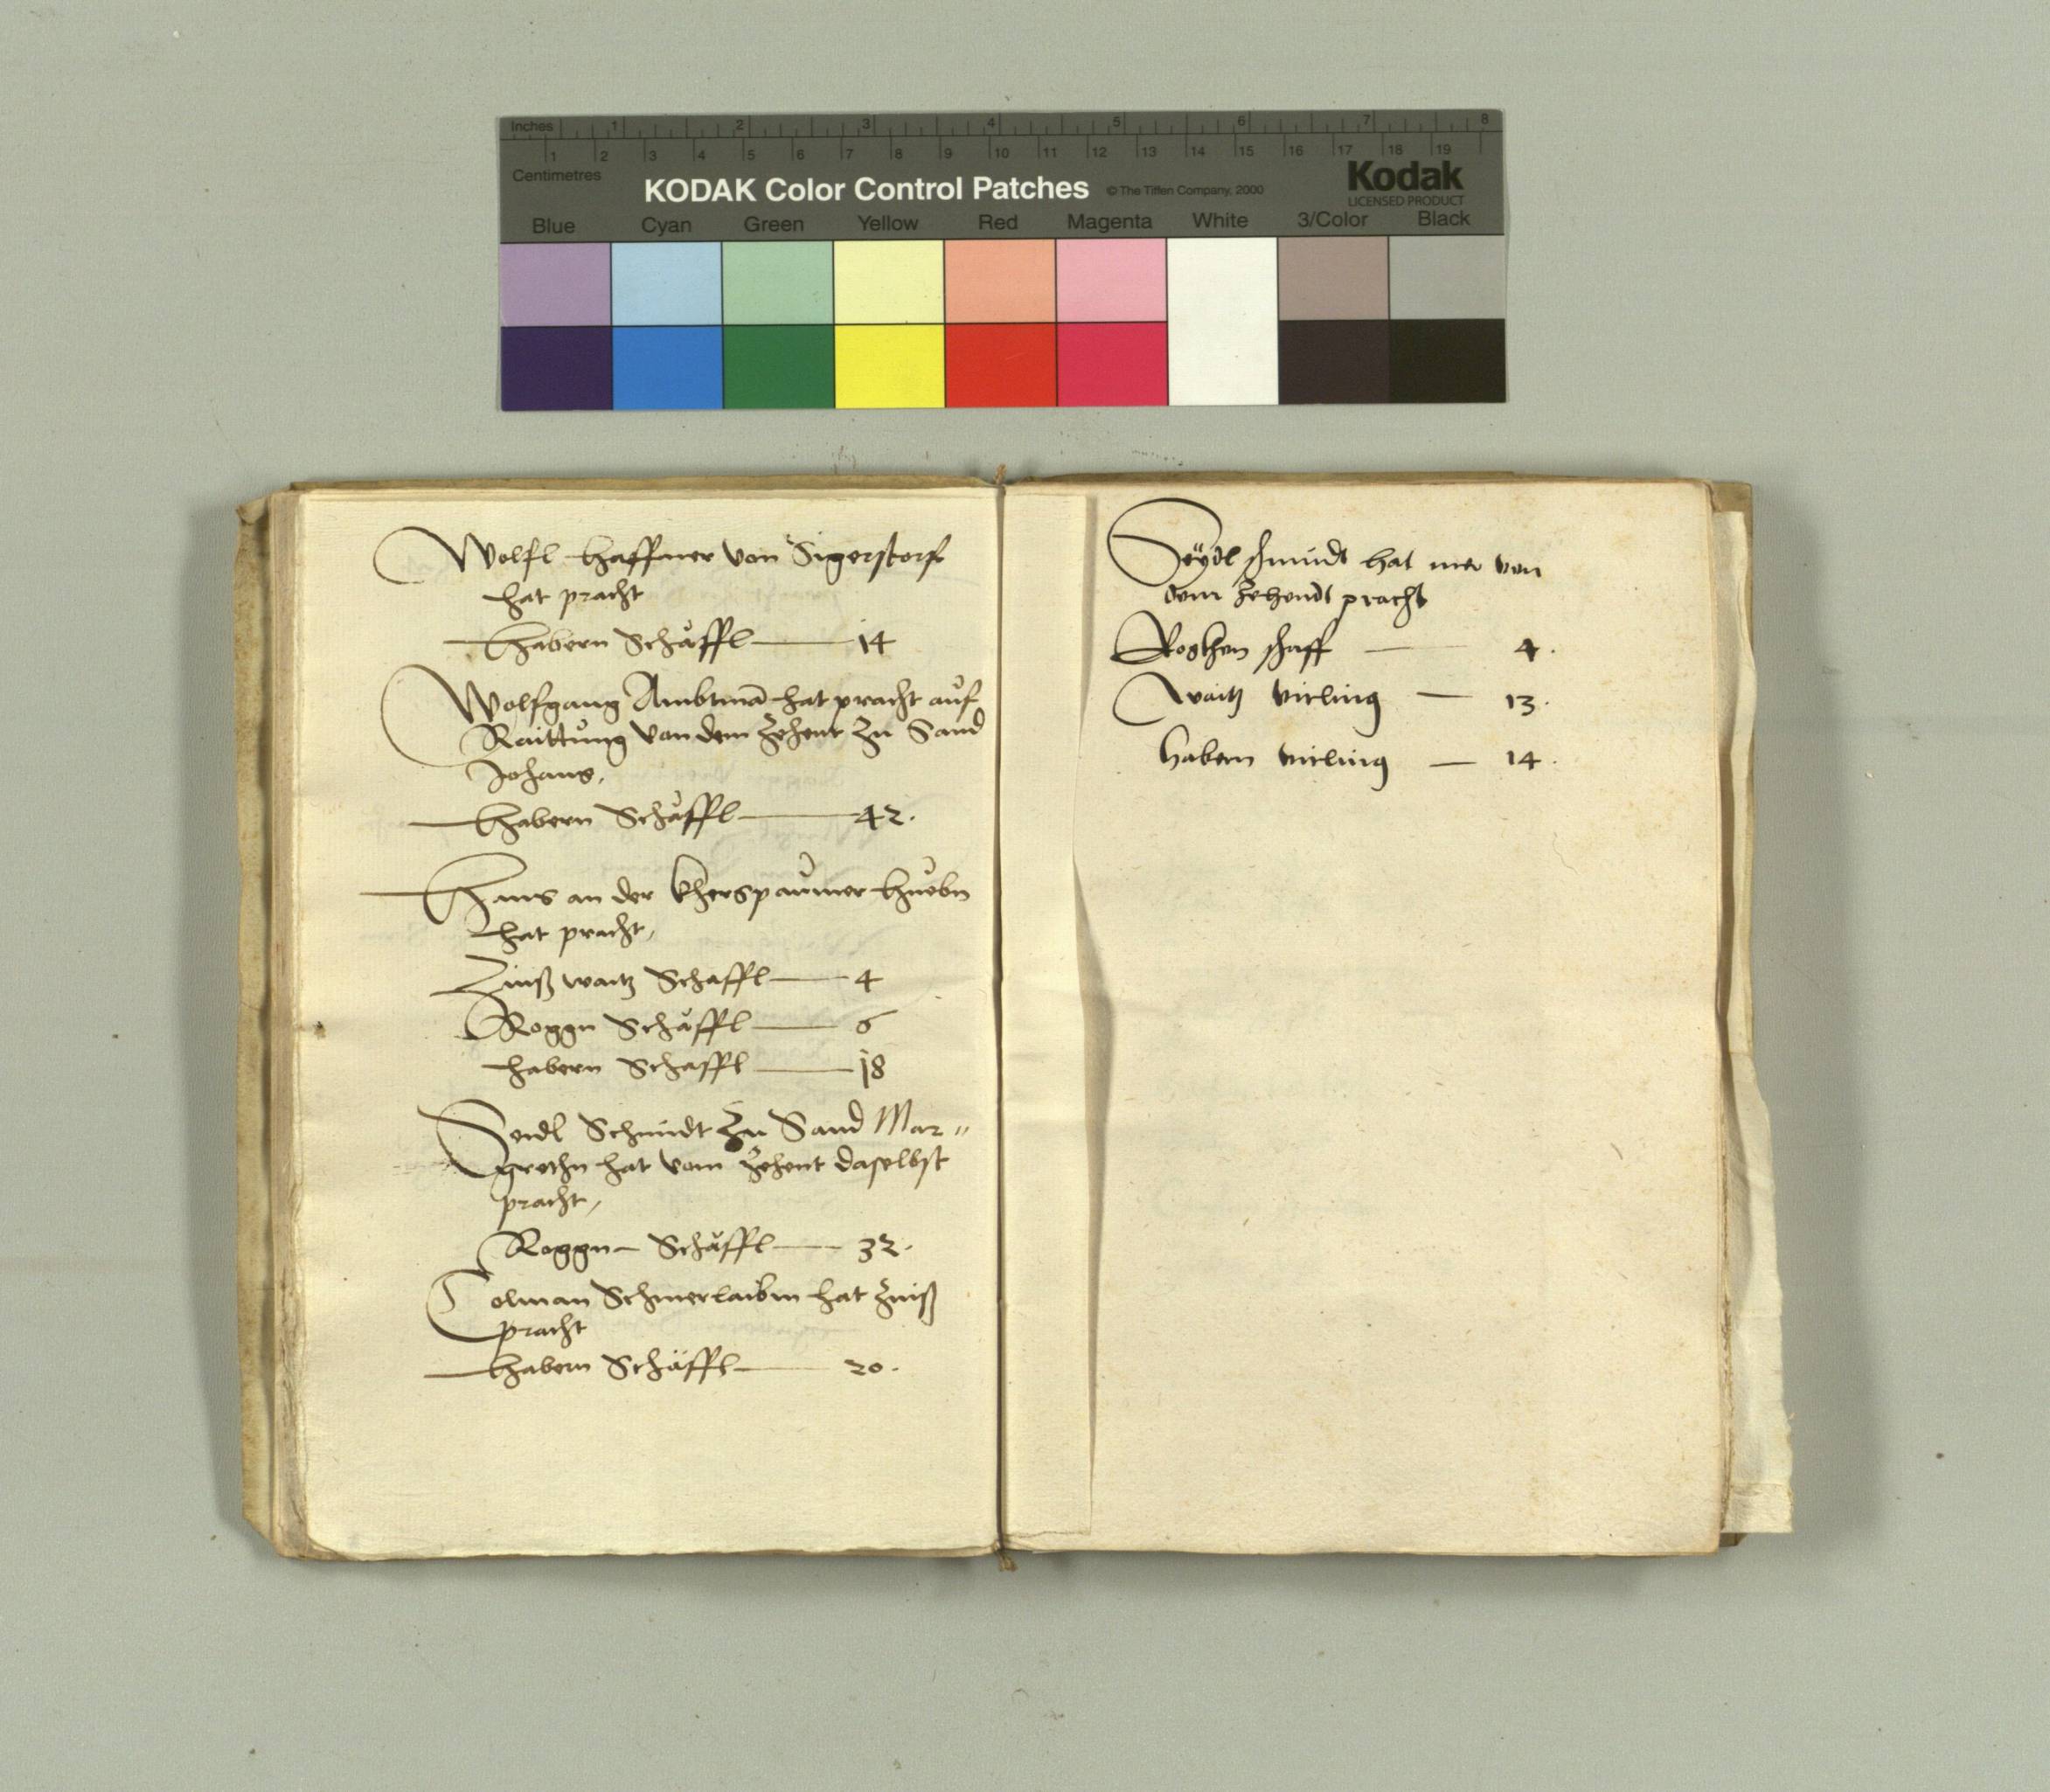 Inches 1 2 3 4 5 6 7 8
1 2 3 4 5 6 7 8 9 10 11 12 13 14 15 16 17 18 19
Centimetres
KODAK Color Control Patches © The Tiffen Company, 2000 Kodak
LICENSED PRODUCT
Blue Cyan Green Yellow Red Magenta White 3/Color Black
Wolfl Haffner von Sigerstorf
hat pracht
Habern Schäffl — 14
Wolfgang Ambtmā hat pracht auf
Raittung von dem Zehent zu Sand
Johans,
Habern Schäffl — 42.
Hans an der Kherspaumer Huebn
hat pracht,
Zinß waitz Schaffl — 4
Roggn Schäffl — 6
habern Schaffl — 18
Seidl Schmidt Zu Sand Mar„
grethn hat vom Zehent daselbst
pracht,
Roggn — Schäffl — 32.
Colman Schmerlaibm hat Zinß
pracht
Habern Schäffl — 20.
Seÿdl schmidt hat mer von
dem zehendt pracht
Rogkhen schaff — 4.
waitz virling — 13.
habern virling — 14.